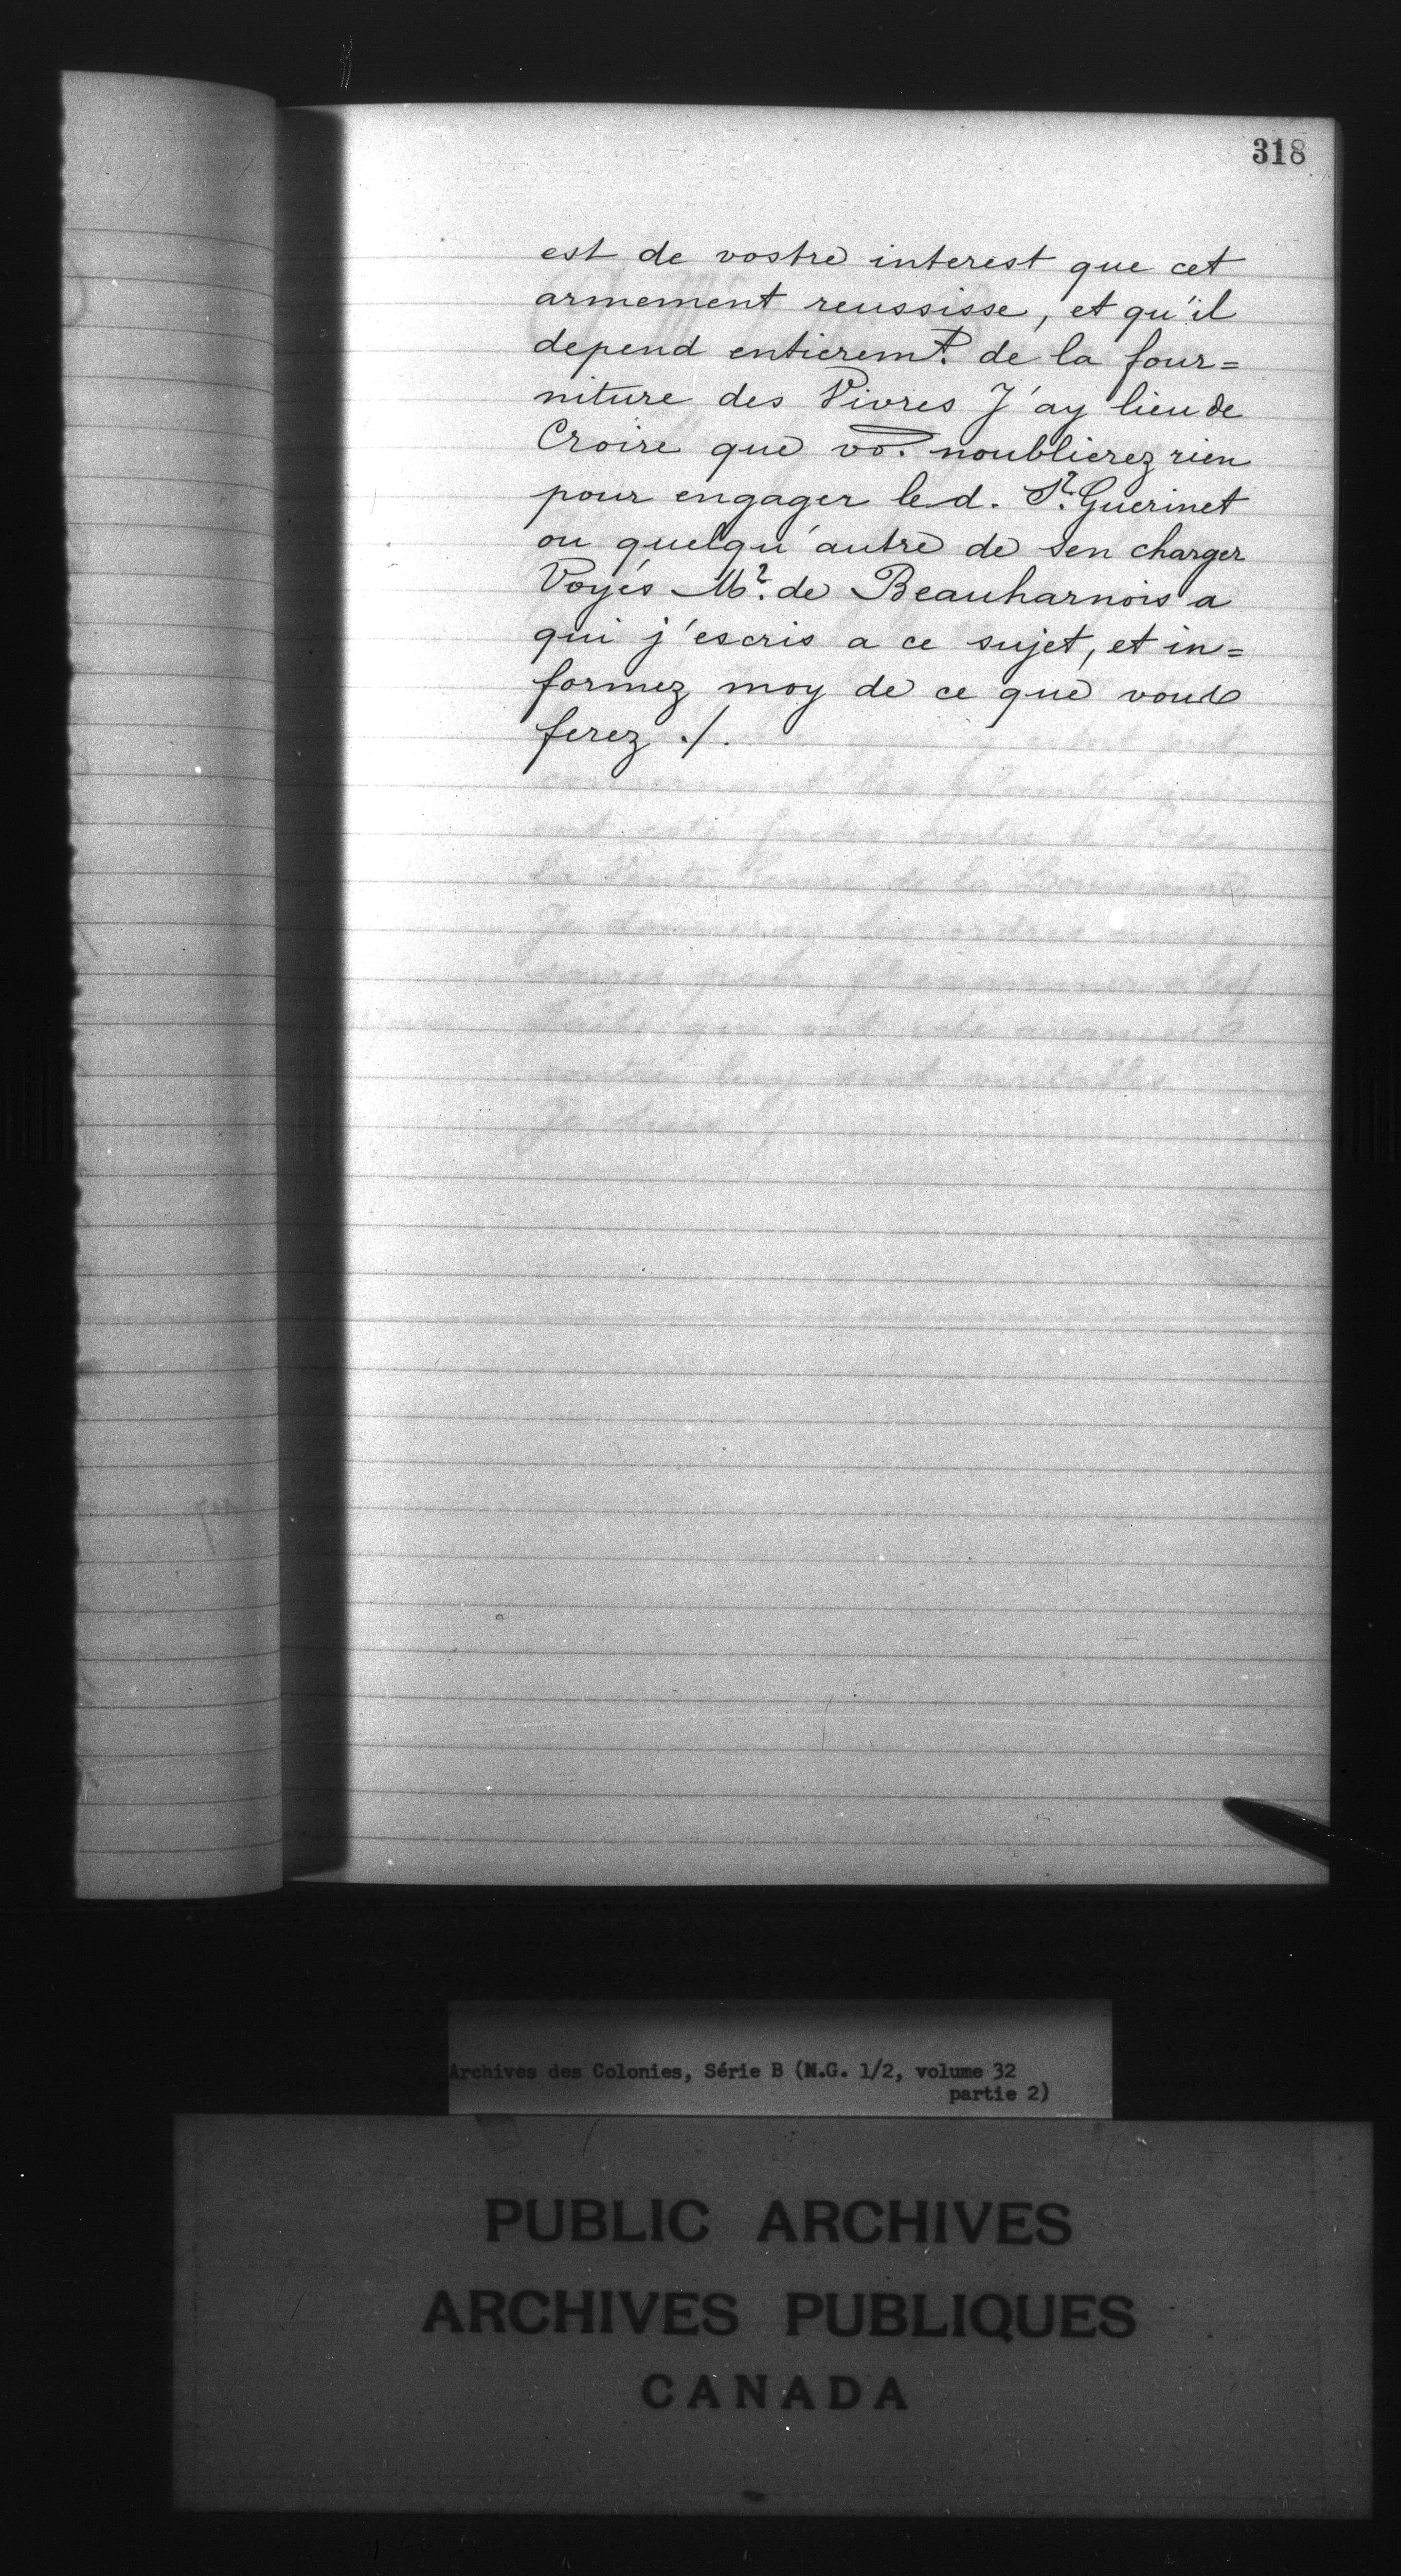 318
est de vostre interest que cet
armement reussisse, et qu'il
depend entieremt. de la four=
niture des Vivres J'ay lieu de
Croire que vo. noublierez rien
pour engager led. Sr. Guerinet
ou quelqu'autre de sen charger
Voyés Mr. de Beauharnois a
qui j'escris a ce sujet, et in=
formez moy de ce que vous
ferez ./.
Archives des Colonies, Série B (M.G. 1/2, volume 32
partie 2)
PUBLIC ARCHIVES
ARCHIVES PUBLIQUES
CANADA